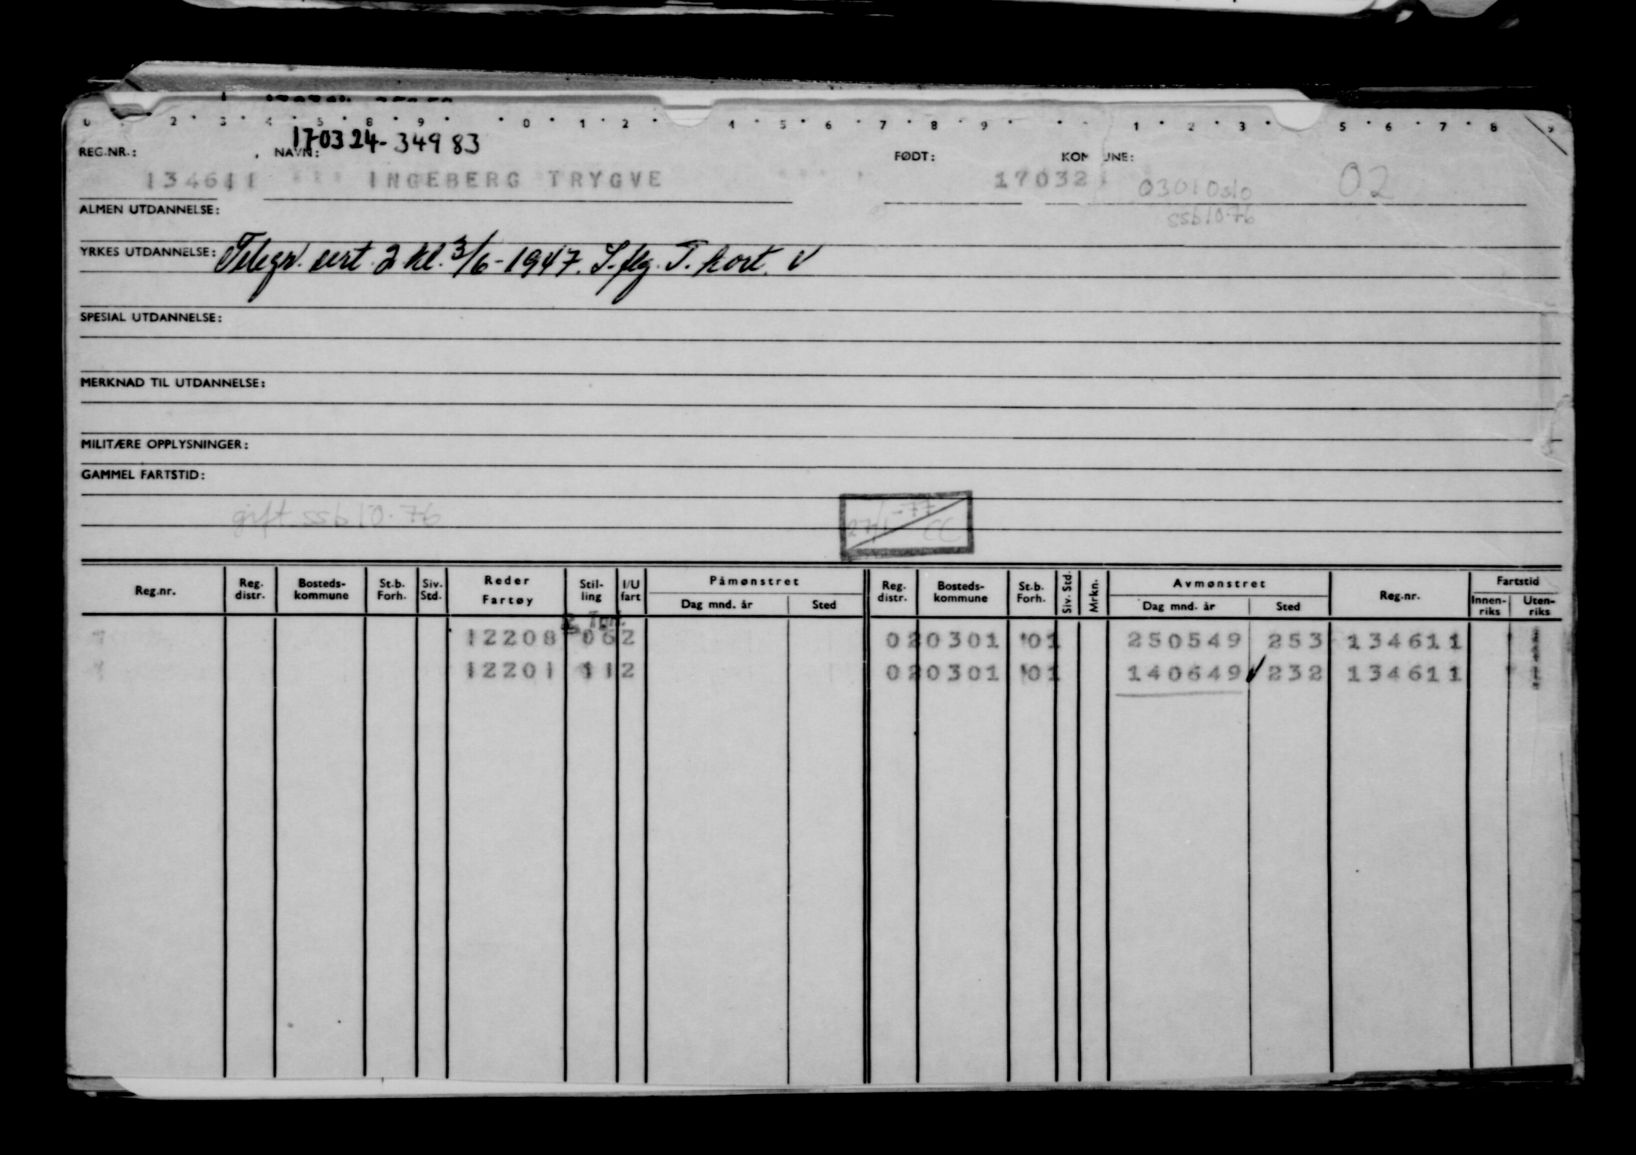 170324-34983
REG.NR.: NAVN: FØDT: KOMMUNE:
134611 INGEBERG TRYGVE 17032 0301 Oslo 02
ssb 10-76
ALMEN UTDANNELSE:
YRKES UTDANNELSE: Telegr. sert. 2 kl. 3/6-1947. S.fleg. T. kort. V
SPESIAL UTDANNELSE:
MERKNAD TIL UTDANNELSE:
MILITÆRE OPPLYSNINGER:
GAMMEL FARTSTID:
gift ssb 10-76
27/1-77 CC
Reg.nr. Reg. distr. Bosteds-kommune St.b. Forh. Siv. Std. Reder Fartøy Stil-ling I/U fart Påmønstret Dag mnd. år Sted Reg. distr. Bosteds-kommune St.b. Forh. Siv. Std. Mrkn. Avmønstret Dag mnd. år Sted Reg.nr. Fartstid Innen-riks Uten-riks
12208 062 020301 01 250549 253 134611
12201 112 020301 01 140649 232 134611